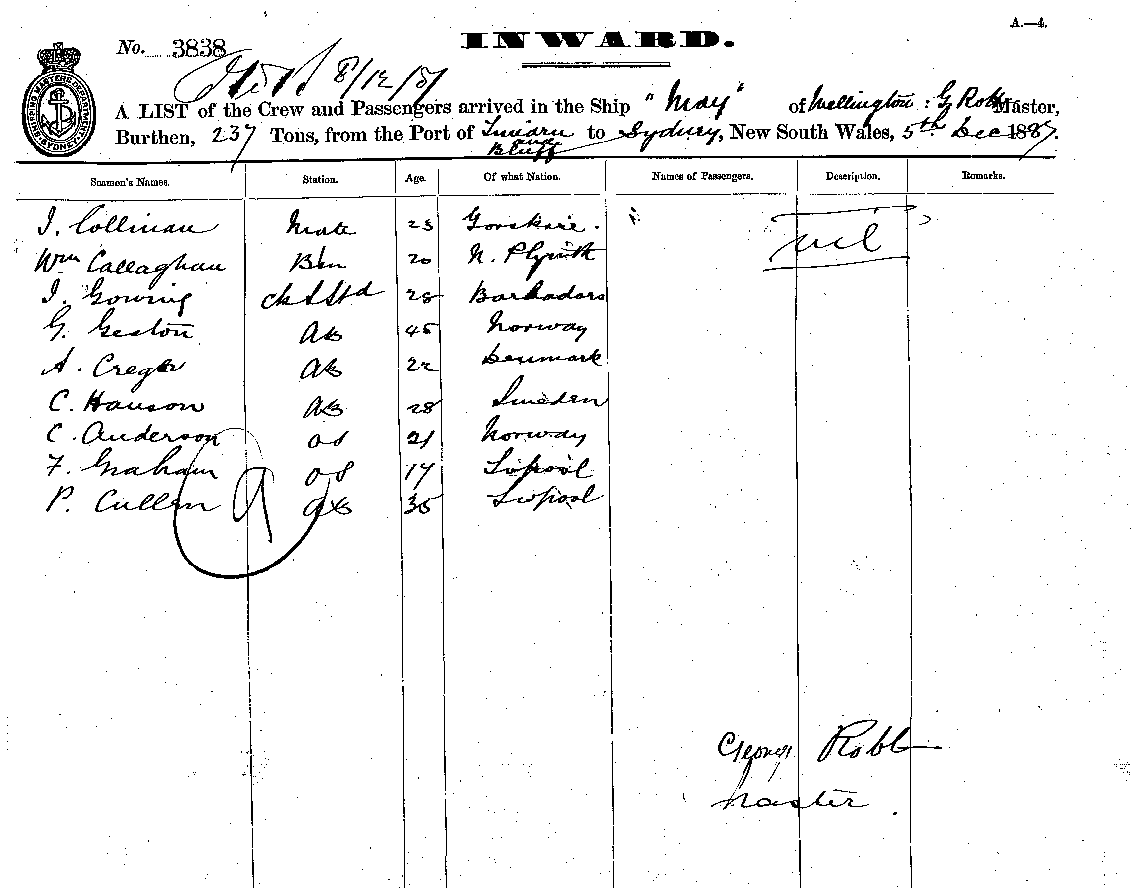 A.—4.
No. 3838
INWARD.
8/12/87
A LIST of the Crew and Passengers arrived in the Ship "May" of Wellington: G Robb Master,
Burthen, 237 Tons, from the Port of and Bluff to Sydney, New South Wales, 5th Dec 1887.
Seamen's Names. Station. Age. Of what Nation. Names of Passengers. Description. Remarks.
J. Mate nil
Wm Callaghan 20 N. Plymth
J. Gowing Ck & Std 28 Barbadors
G. AB 45 Norway
A. AB 22 Denmark
C. Hanson AB 28 Sweden
C. Anderson OS 21 Norway
F. Graham OS 17 Livpool
P. Cullen AB 35 Livpool
9
George Robb
Master.